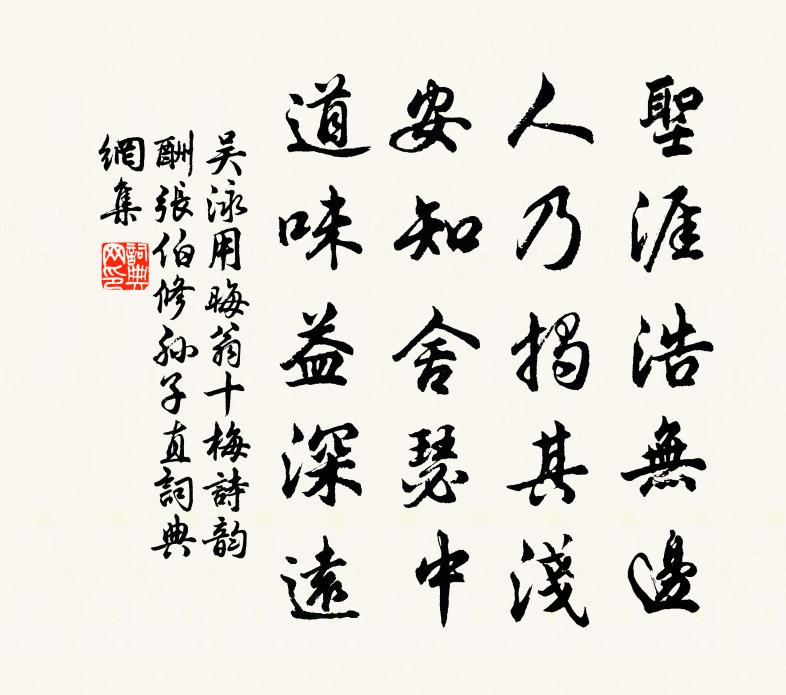 聖涯浩無邊
人乃揭其淺
安知舍瑟中
道味益深遠
吴泳用晦翁十梅詩韵
酬張伯修孙子直詞典
網集
詞典网印